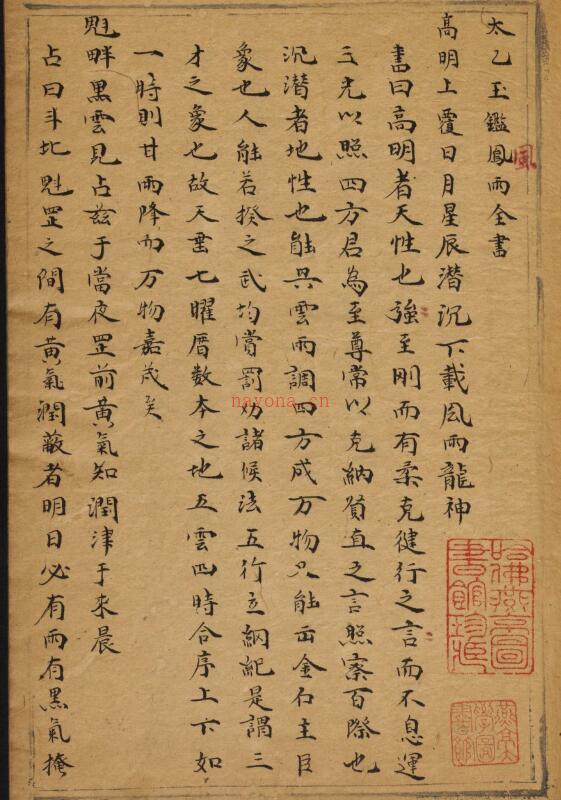 太乙玉鑑鳳雨全書
風
高明上覆日月星辰潛沉下載風雨龍神
書曰高明者天性也強至刚而有柔克健行之言而不息運
三光以照四方君為至尊常以克納質直之言照察百際也
沉潛者地性也能興雲雨調四方成万物只能出金石主臣
象也人能若揆之武均賞罰劝諸候法五行立綱紀是謂三
才之象也故天垂七曜曆数本之地五雲四時合序上下如
一時則甘雨降而万物嘉成矣
魁畔黑雲見占兹于當夜罡前黄氣知潤津于來晨
占曰斗北魁罡之間有黄氣潤蔽者明日必有雨有黑氣掩
nayona.cn
哈佛燕京圖書館珍藏